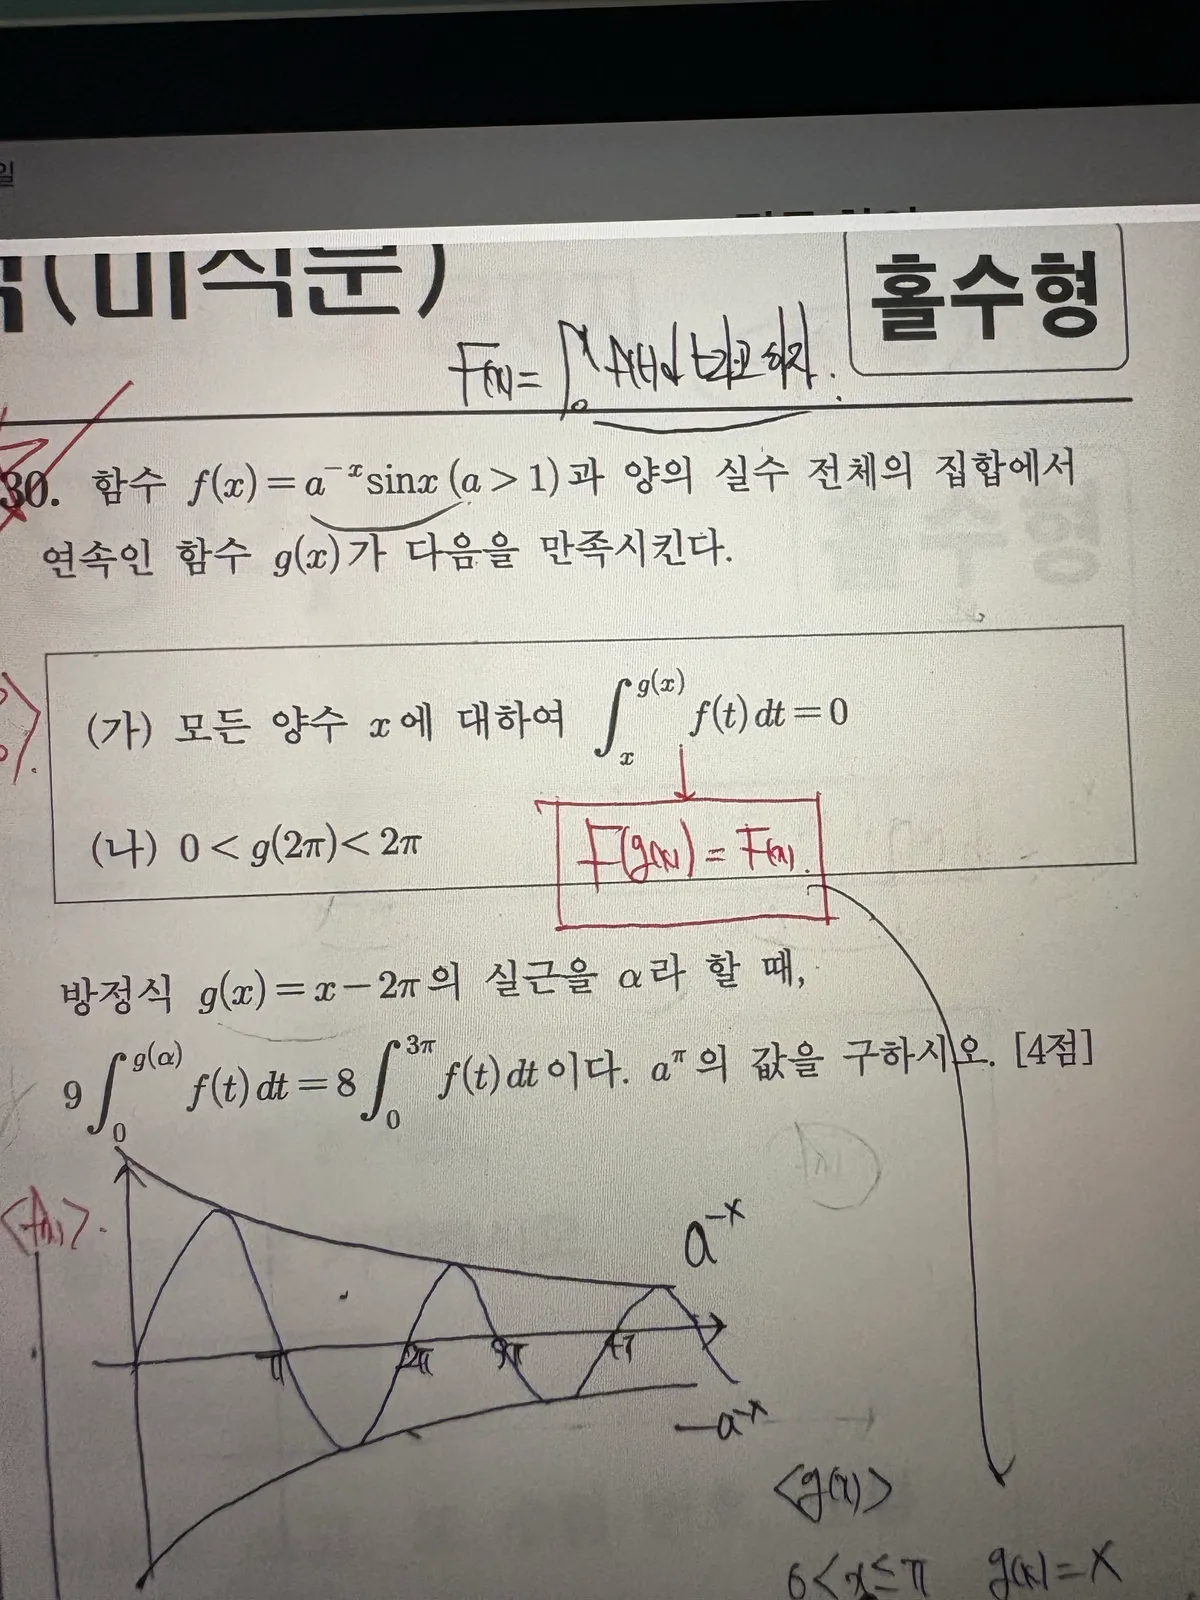 일
(미적분)
홀수형
F(x)=∫₀ˣ f(t)dt
30. 함수 f(x)=a⁻ˣsinx (a>1)과 양의 실수 전체의 집합에서
연속인 함수 g(x)가 다음을 만족시킨다.
(가) 모든 양수 x에 대하여 ∫ₓ^{g(x)} f(t)dt=0
(나) 0<g(2π)<2π
F(g(x))=F(x).
방정식 g(x)=x-2π의 실근을 α라 할 때,
9∫₀^{g(α)} f(t)dt=8∫₀^{3π} f(t)dt이다. a^π의 값을 구하시오. [4점]
<f(x)>.
a⁻ˣ
π 2π 3π 4π
-a⁻ˣ
<g(x)>
0<x≤π g(x)=x